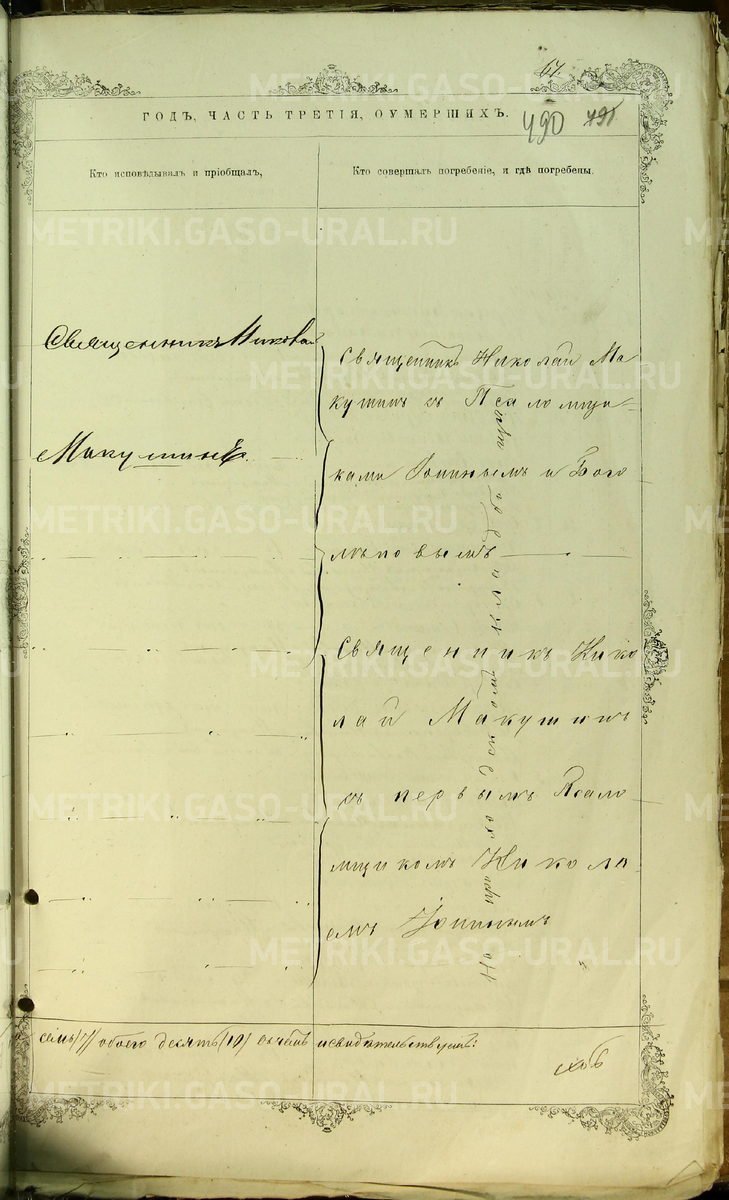 67.
ГОДЪ, ЧАСТЬ ТРЕТІЯ, ОУМЕРШИХЪ.
490
Кто исповѣдывалъ и пріобщалъ,
Кто совершалъ погребеніе, и гдѣ погребены.
Священникъ Николай
Макушинъ.
Священникъ Николай Ма
кушинъ съ Псаломщи-
ками Іонинымъ и Бого
лѣповымъ
Священникъ Нико
лай Макушинъ
съ первымъ Псало
мщикомъ Никола
емъ Іонинымъ
На приходскомъ кладбищѣ
семь /7/ обоего десять /10/
METRIKI.GASO-URAL.RU